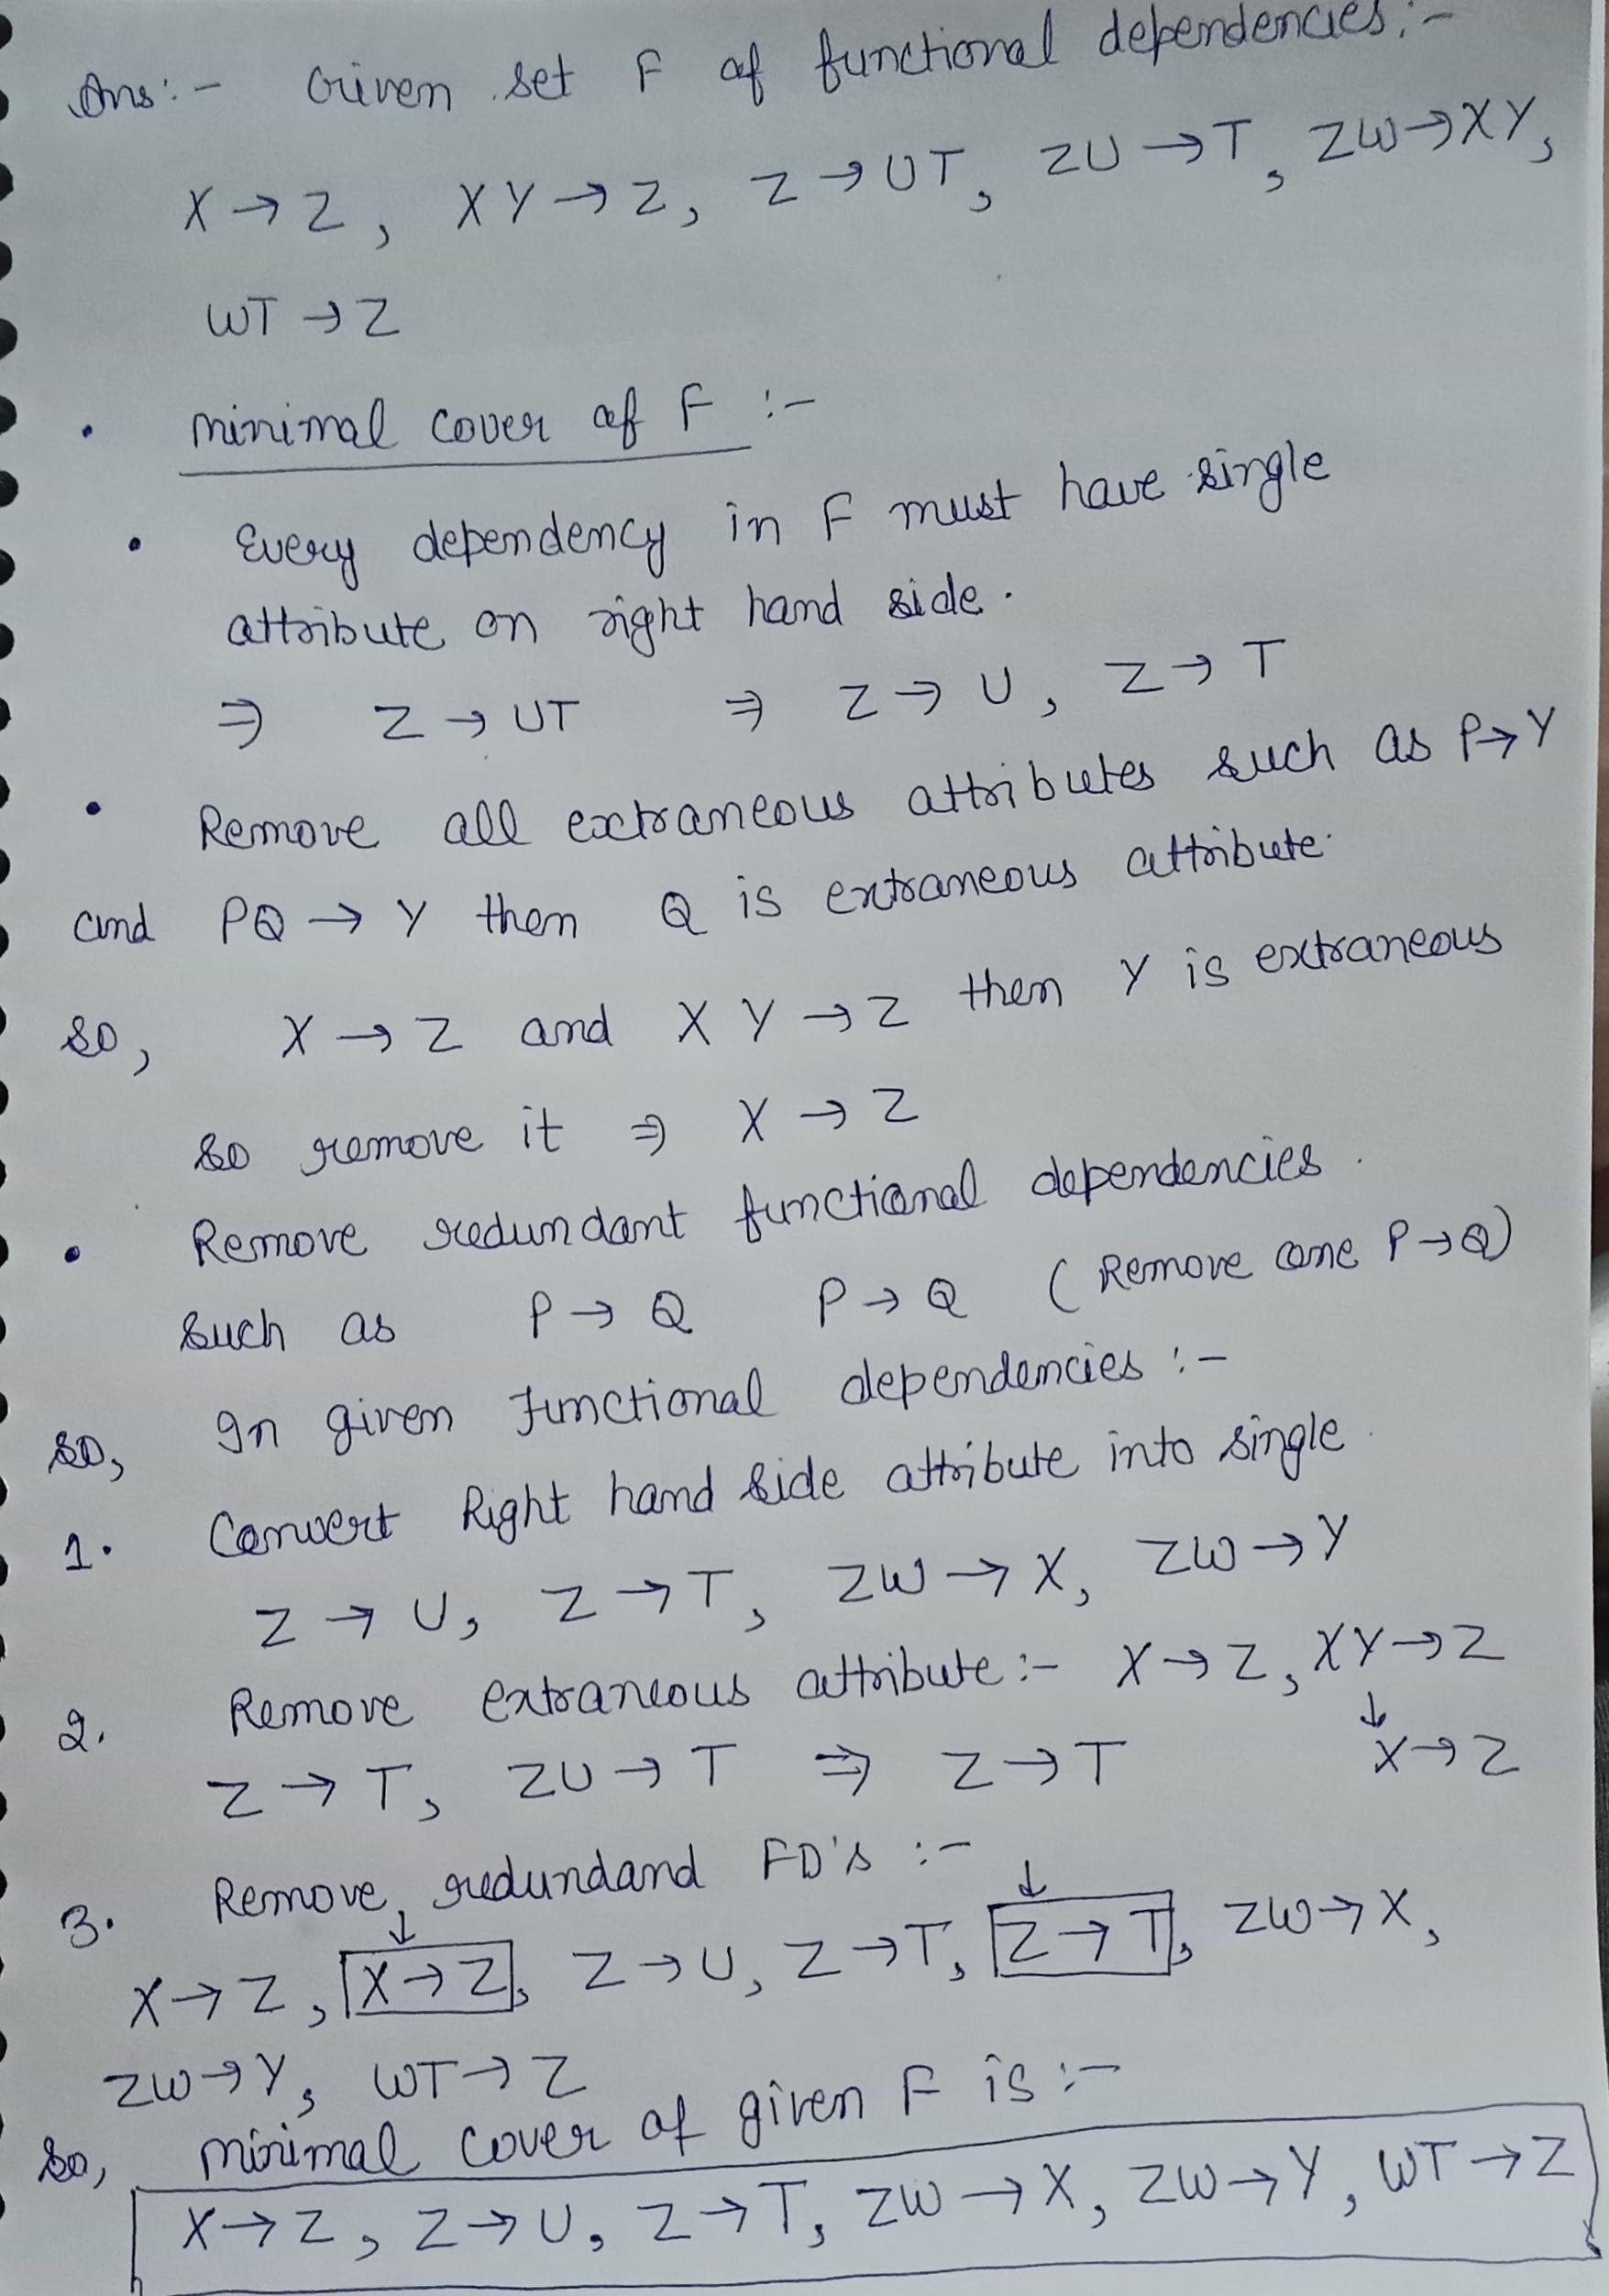 Ans:- Given set F of functional dependencies:-
X → Z, XY → Z, Z → UT, ZU → T, ZW → XY,
WT → Z
• minimal cover of F :-
• Every dependency in F must have single
attribute on right hand side.
⇒ Z → UT ⇒ Z → U, Z → T
• Remove all extraneous attributes such as P → Y
and PQ → Y then Q is extraneous attribute.
so, X → Z and XY → Z then Y is extraneous
so remove it ⇒ X → Z
• Remove redundant functional dependencies.
such as P → Q P → Q (Remove one P → Q)
so, In given Functional dependencies :-
1. Convert Right hand side attribute into single.
Z → U, Z → T, ZW → X, ZW → Y
2. Remove extraneous attribute:- X → Z, XY → Z
↓
Z → T, ZU → T ⇒ Z → T X → Z
3. Remove redundand FD's :-
↓ ↓
X → Z, X → Z, Z → U, Z → T, Z → T, ZW → X,
ZW → Y, WT → Z
So, minimal cover of given F is :-
X → Z, Z → U, Z → T, ZW → X, ZW → Y, WT → Z